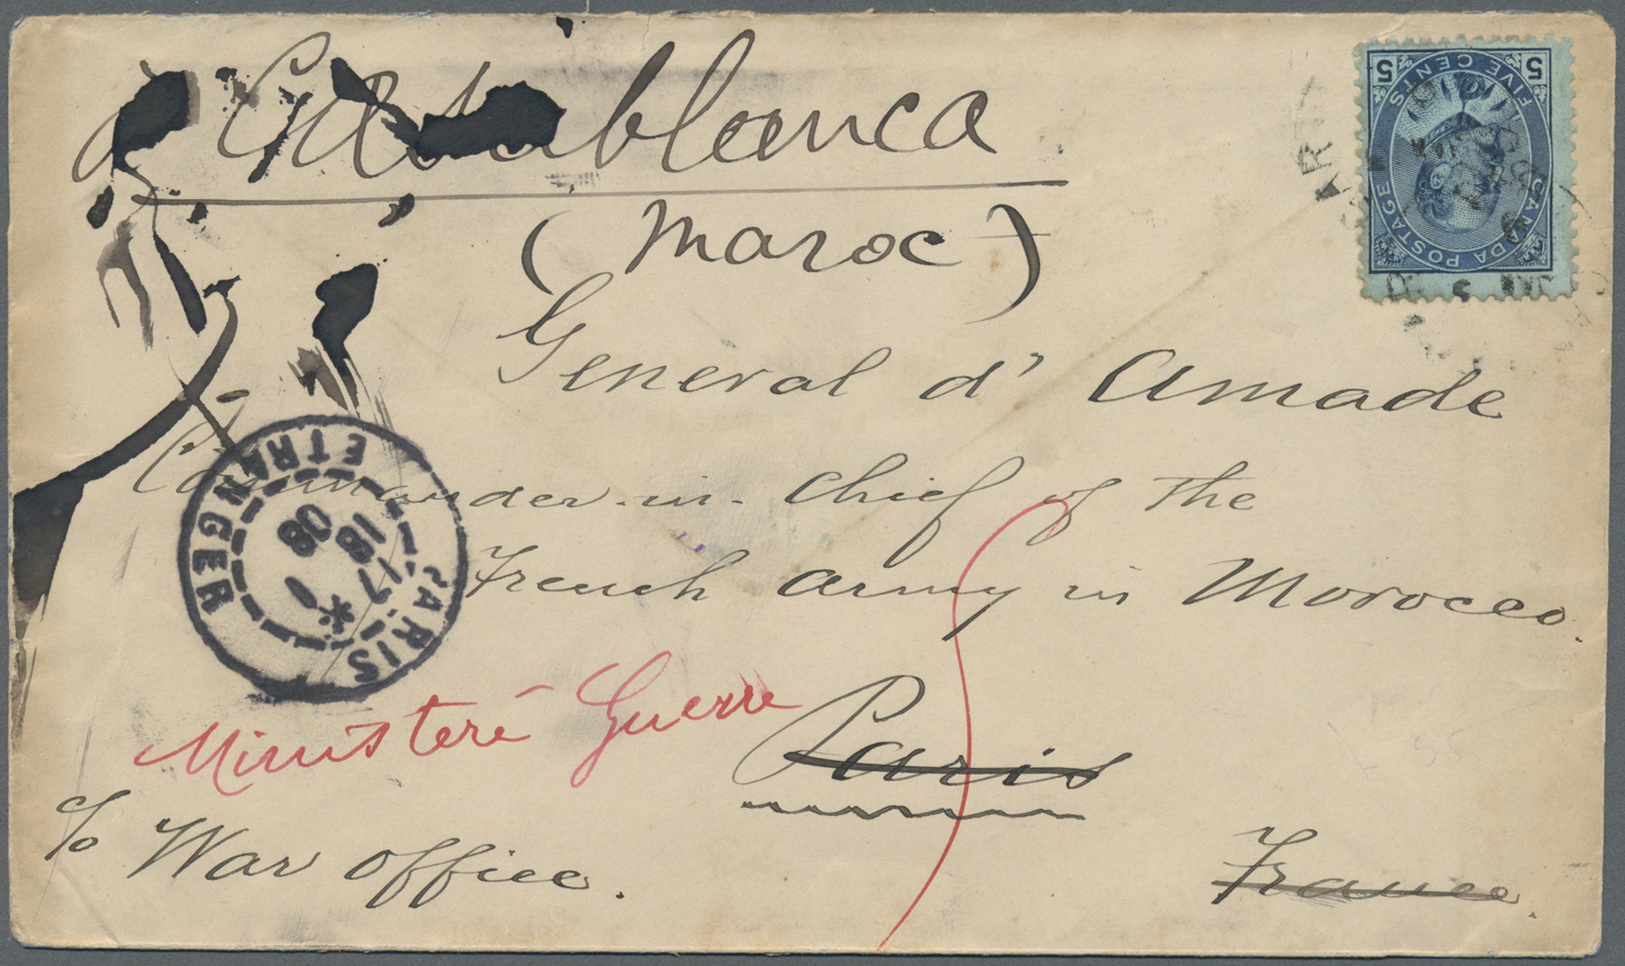 à Casablanca
(Maroc)
General d' Amade
Commander-in-Chief of the
French Army in Morocco.
Ministeré Guerre
Paris
c/o War Office.
France.
PARIS
ETRANGER
17
18
1
08
CANADA POSTAGE
FIVE CENTS
5 5